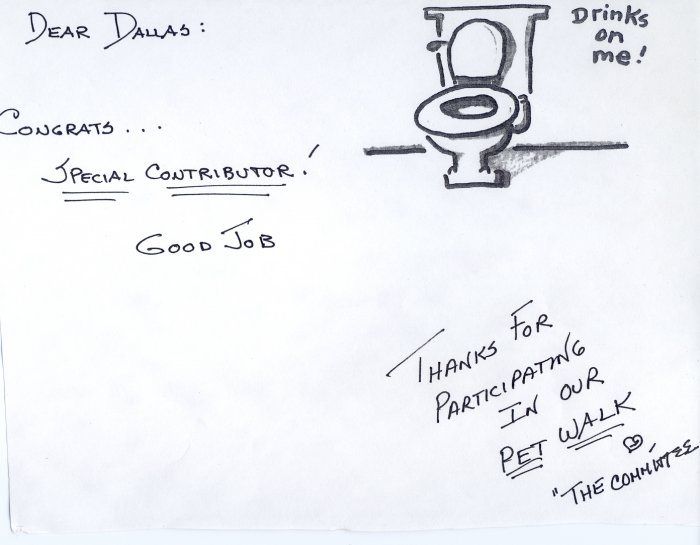 DEAR DALLAS:
Drinks
on
me!
CONGRATS...
SPECIAL CONTRIBUTOR!
GOOD JOB
THANKS FOR
PARTICIPATING
IN OUR
PET WALK
"THE COMMITTEE